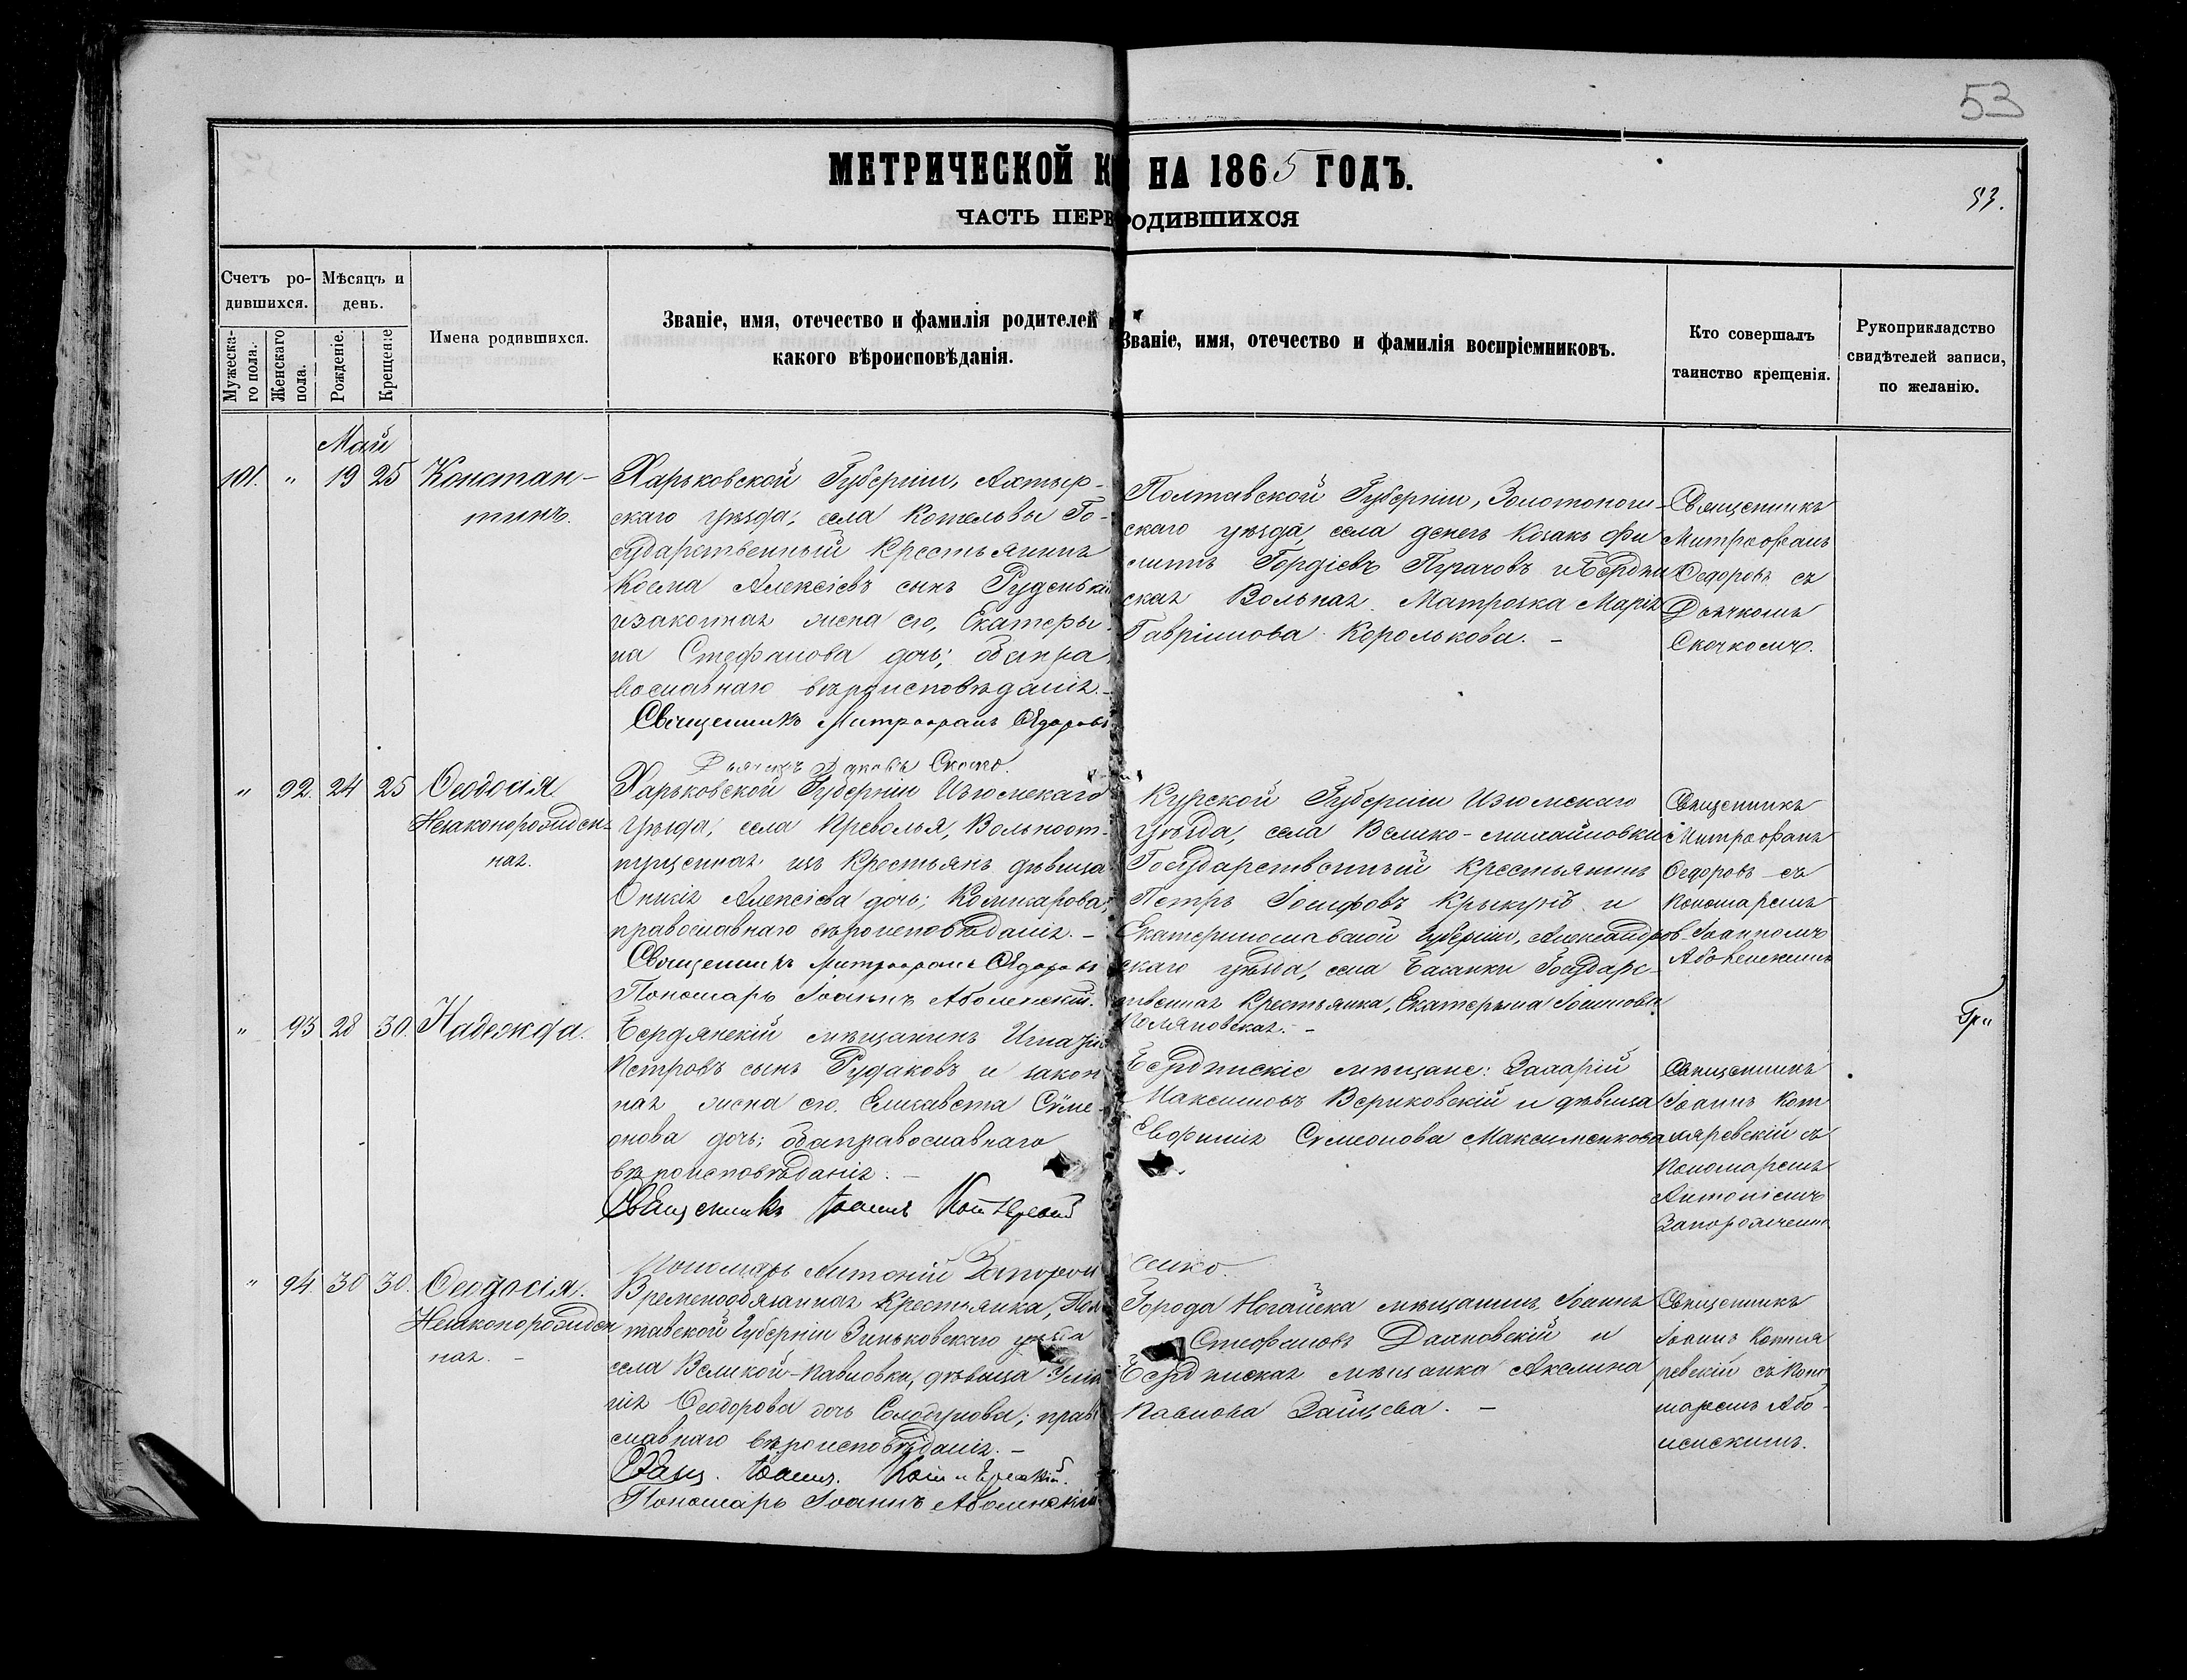 53
МЕТРИЧЕСКОЙ К НА 1865 ГОДЪ.
53.
ЧАСТЬ ПЕРВ РОДИВШИХСЯ
Счетъ ро-
дившихся.
Мѣсяцъ и
день.
Мужеска-
го пола.
Женскаго
пола.
Рожденіе.
Крещеніе
Имена родившихся.
Званіе, имя, отечество и фамилія родителей
какого вѣроисповѣданія.
Званіе, имя, отечество и фамилія воспріемниковъ.
Кто совершалъ
таинство крещенія.
Рукоприкладство
свидѣтелей записи,
по желанію.
Май
101. " 19 25 Констан-
тинъ.
Харьковской Губерніи, Ахтыр-
скаго уѣзда, села Котельвы Го-
сударственный Крестьянинъ
Косма Алексіевъ сынъ Руденька
и законная жена его, Екатеры-
на Стефанова дочь; оба пра-
вославнаго вѣроисповѣданія.-
Священникъ Митрофанъ Ѳедоровъ
Дьячекъ Скочко.
Полтавской Губерніи, Золотонош-
скаго уѣзда, села Козакъ Фи
Гордіевъ Пугачовъ и Бердян
ская Вольная Матроска Марія
Гавріилова Королькова. -
Священникъ
Митрофанъ
Ѳедоровъ съ
Дьячкомъ
Скочкомъ.
" 92. 24 25 Ѳеодосія
Незаконорожден-
ная.
Харьковской Губерніи Изюмскаго
уѣзда, села Вольноот-
пущенная изъ Крестьянъ дѣвица
Алексіева дочь;
православнаго вѣроисповѣданія. -
Священникъ Митрофанъ Ѳедоровъ
Пономарь Іоаннъ Аболенскій.
Курской Губерніи Изюмскаго
уѣзда, села Велико-михайловки
Государственный крестьянинъ
Петръ Іосифовъ и
Екатеринославской Губерніи, Александров-
скаго уѣзда, села Государс-
твенная Крестьянка, Екатерына
Священникъ
Митрофанъ
Ѳедоровъ съ
пономаремъ
Іоанномъ
Аболенскимъ
" 93 28 30. Надежда.
Бердянскій мѣщанинъ Игнатій
Петровъ сынъ Рудаковъ и закон-
ная жена его Елисавета Сѵме-
онова дочь; оба православнаго
вѣроисповѣданія. -
Священникъ Іоаннъ Котляревскій
Пономарь Антоній Запорож
енко.
Бердянскіе мѣщане: Захарій
Максимовъ Вериковскій и дѣвица
Евфимія Сѵмеонова Максименкова
Священникъ
Іоаннъ Кот
ляревскій съ
пономаремъ
Антоніемъ
Запорожченко
" 94. 30 30. Ѳеодосія.
Незаконорожден
ная. -
Временнообязанная Крестьянка, Пол-
тавской Губерніи Зиньковскаго уѣзда
села Великой-Павловки, дѣвица Ули
нія Ѳеодорова дочь Солодунова; право
славнаго вѣроисповѣданія. -
Свящ. Іоаннъ Котляревскій.
Пономарь Іоаннъ Аболенскій
Города Ногайска мѣщанинъ Іоаннъ
Стефановъ и
Бердянская мѣщанка Акелина
Павлова Зайцева. -
Священникъ
Іоаннъ Котля
ревскій съ поно
маремъ Або-
ленскимъ.